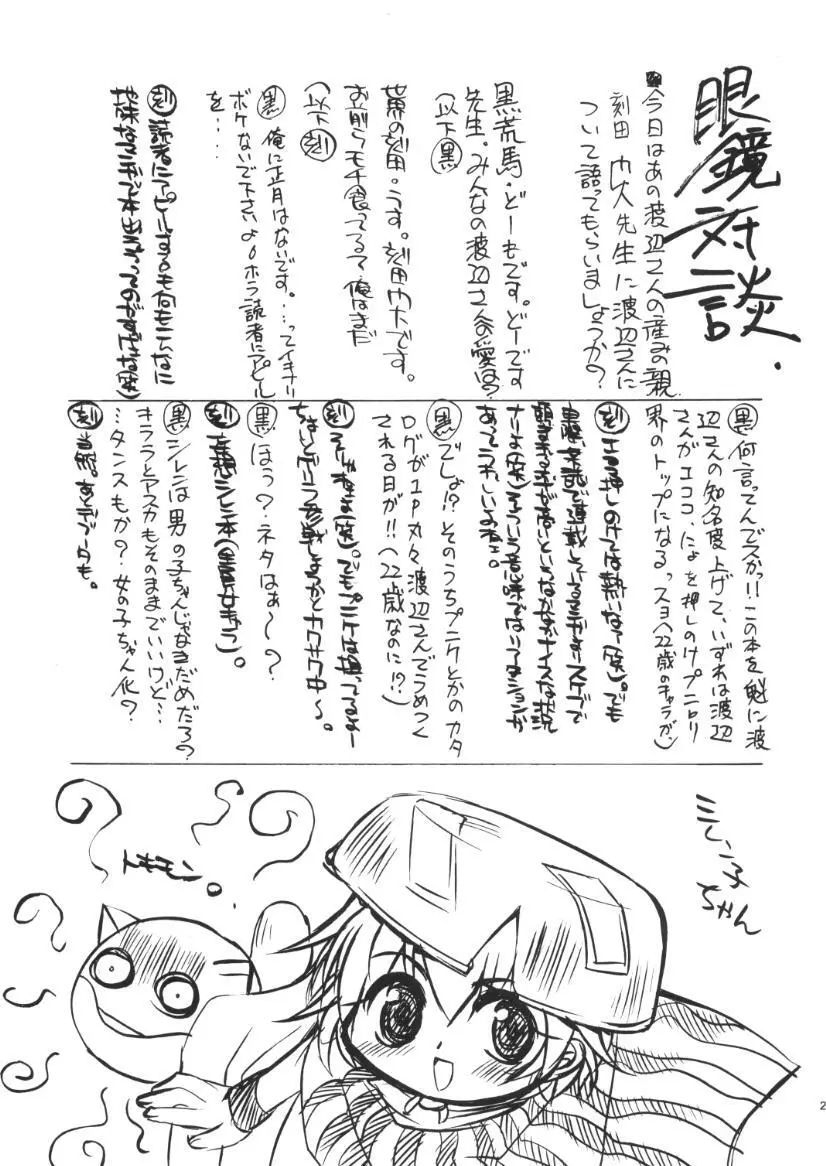 眼鏡対談.
今日はあの渡辺さんの産みの親
刻田 門大先生に渡辺さんに
ついて語ってもらいましょうか?
黒荒馬・どーもです。どーです
先生。みんなの渡辺さんへの愛は?
(以下黒)
世界の刻田・うす。刻田門大です。
お前らモチ食ってるて 俺はまだ
(以下刻)
黒 俺に正月はないです。…ってイキナリ
ボケないで下さいよ。ホラ読者にアピール
を……
刻 読者にアピールするも何もこんなに
地味なマンガで本出るってのがすげえな(笑)
黒 何言ってんでスかっ!!この本を魁に渡
辺さんの知名度上げて、いずれは渡辺
さんがエココ、にょを押しのけプニロリ
界のトップになるっスョ(22歳のキャラが)
刻 にょ押しのけては熱いなァ(笑)。でも
頭身が高いというなかなかナイスな状況
ナリよ(笑)そういう意味ではハイテンションが
あってうれしいよねェ。
黒 でしょ!?そのうちプニケとかのカタ
ログが1P丸々渡辺さんでうめつく
される日が!!(22歳なのに!?)
刻 そりゃねェよ(笑)。でもプニケは狙ってるよー
ちょいとゲーラ参戦しようかとカクサク中〜。
黒 ほう?ネタはぁ〜?
刻 妄想シレン本(全員女キャラ)。
黒 シレンは男の子ちゃんじゃなきだめだろ?
キララとアスカもそのままでいいけど…
…タンスもか?女の子ちゃん化?
刻 当然。あとデブータも。
ミレン子
ちゃん
トモモン。
2